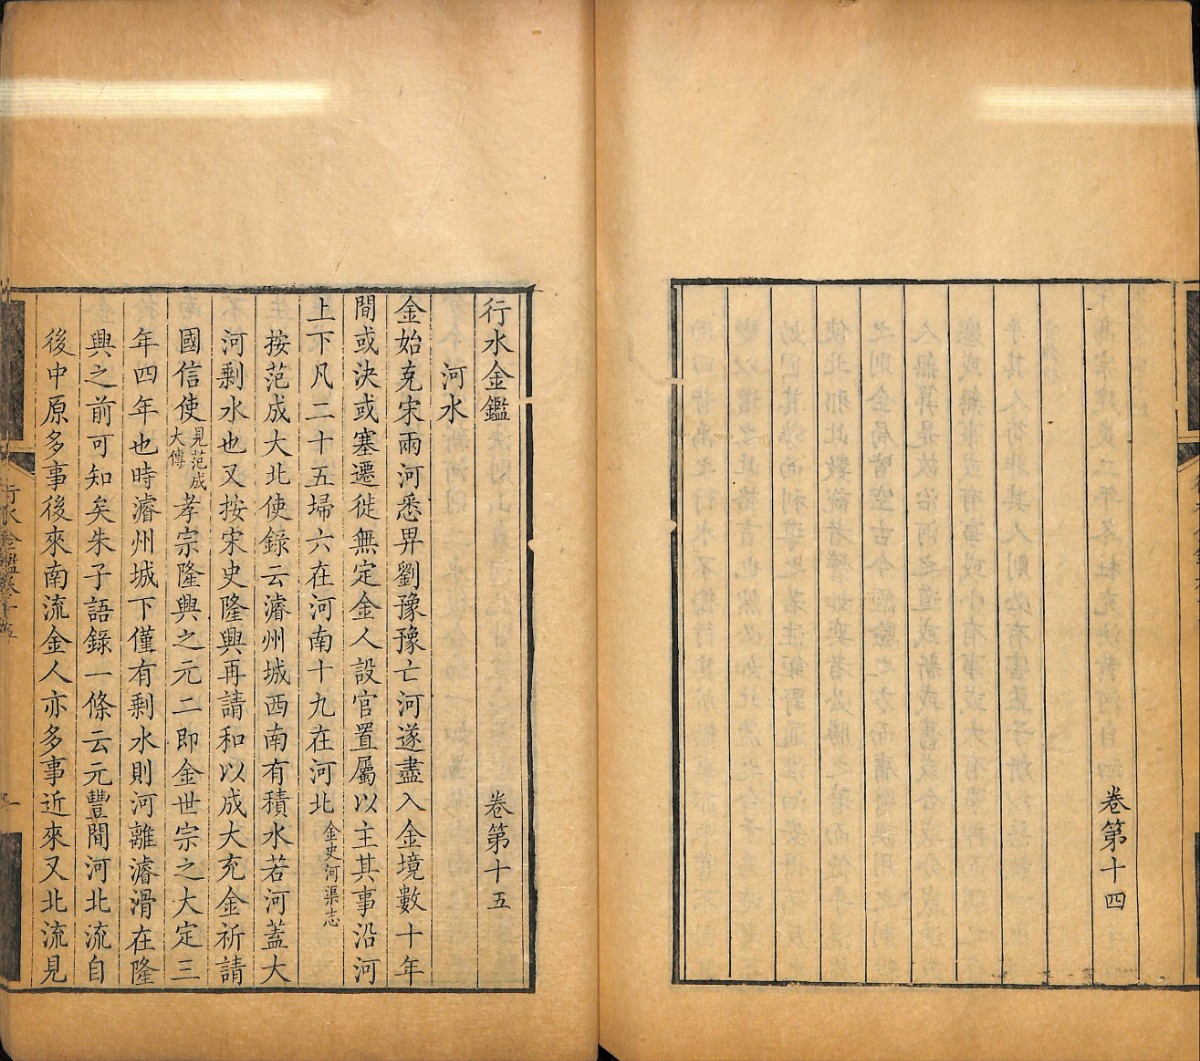 卷第十四
行水金鑑 卷第十五
河水
金始克宋兩河悉畀劉豫豫亡河遂盡入金境數十年
間或決或塞遷徙無定金人設官置屬以主其事沿河
上下凡二十五埽六在河南十九在河北金史河渠志
按范成大北使錄云濬州城西南有積水若河蓋大
河剩水也又按宋史隆興再請和以成大充金祈請
國信使見范成大傳孝宗隆興之元二即金世宗之大定三
年四年也時濬州城下僅有剩水則河離濬滑在隆
興之前可知矣朱子語錄一條云元豐間河北流自
後中原多事後來南流金人亦多事近來又北流見
行水金鑑卷十五
一